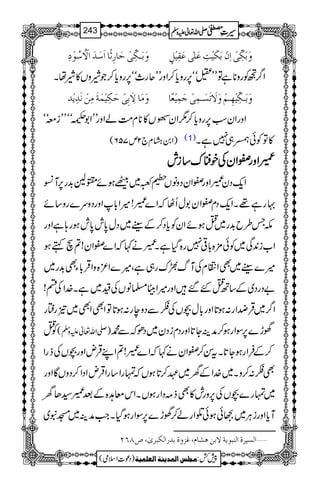 سیرتِ مصطفیٰ صلی اللہ تعالیٰ علیہ وسلم 243
وَبَکِّیْ اِنْ بَکَیْتِ عَلٰی عَقِیْلٍ وَبَکِّیْ حَارِثًا اَسَدَ الْاُسُوْدِ
اگر تجھ کو رونا ہے تو ’’عقیل‘‘ پر رویا کر اور ’’حارث‘‘ پر رویا کر جو شیروں کا شیر تھا۔
وَبَکِّیْهِمْ وَلَا تَسَمِیْ جَمِیْعًا وَمَا لِاَبِیْ حَکِیْمَةَ مِنْ نَدِیْدٍ
اور ان سب پر رویا کر مگر ان سبھوں کا نام مت لے اور ’’ابو حکیمہ‘‘ ’’زمعہ‘‘
کا تو کوئی ہمسر ہی نہیں ہے۔ (1) (ابن ہشام ج ۲ ص ۶۵۷)
عمیر اور صفوان کی خوفناک سازش
ایک دن عمیر اور صفوان دونوں حطیم کعبہ میں بیٹھے ہوئے مقتولین بدر پر آنسو
بہا رہے تھے۔ ایک دم صفوان بول اٹھا کہ اے عمیر! میرا باپ اور دوسرے روسائے
مکہ جس طرح بدر میں قتل ہوئے ان کو یاد کر کے سینے میں دل پاش پاش ہو رہا ہے اور
اب زندگی میں کوئی مزہ باقی نہیں رہ گیا ہے۔ عمیر نے کہا کہ اے صفوان! تم سچ کہتے ہو
میرے سینے میں بھی انتقام کی آگ بھڑک رہی ہے، میرے اعزہ و اقربا بھی بدر میں
بے دردی کے ساتھ قتل کئے گئے ہیں اور میرا بیٹا مسلمانوں کی قید میں ہے۔ خدا کی قسم!
اگر میں قرضدار نہ ہوتا اور بال بچوں کی فکر سے دو چار نہ ہوتا تو ابھی ابھی میں تیز رفتار
گھوڑے پر سوار ہو کر مدینہ جاتا اور دم زدن میں دھوکہ سے محمد (صلی اللہ تعالیٰ علیہ وسلم) کو قتل
کر کے فرار ہو جاتا۔ یہ سن کر صفوان نے کہا کہ اے عمیر! تم اپنے قرض اور بچوں کی ذرا
بھی فکر نہ کرو۔ میں خدا کے گھر میں عہد کرتا ہوں کہ تمہارا سارا قرض ادا کر دوں گا اور
میں تمہارے بچوں کی پرورش کا بھی ذمہ دار ہوں۔ اس معاہدہ کے بعد عمیر سیدھا گھر
آیا اور زہر میں بجھائی ہوئی تلوار لے کر گھوڑے پر سوار ہو گیا۔ جب مدینہ میں مسجد نبوی
......السیرة النبویة لابن هشام، غزوة بدر الکبری، ص۲۶۸
پیش کش: مجلس المدینة العلمیة (دعوتِ اسلامی)